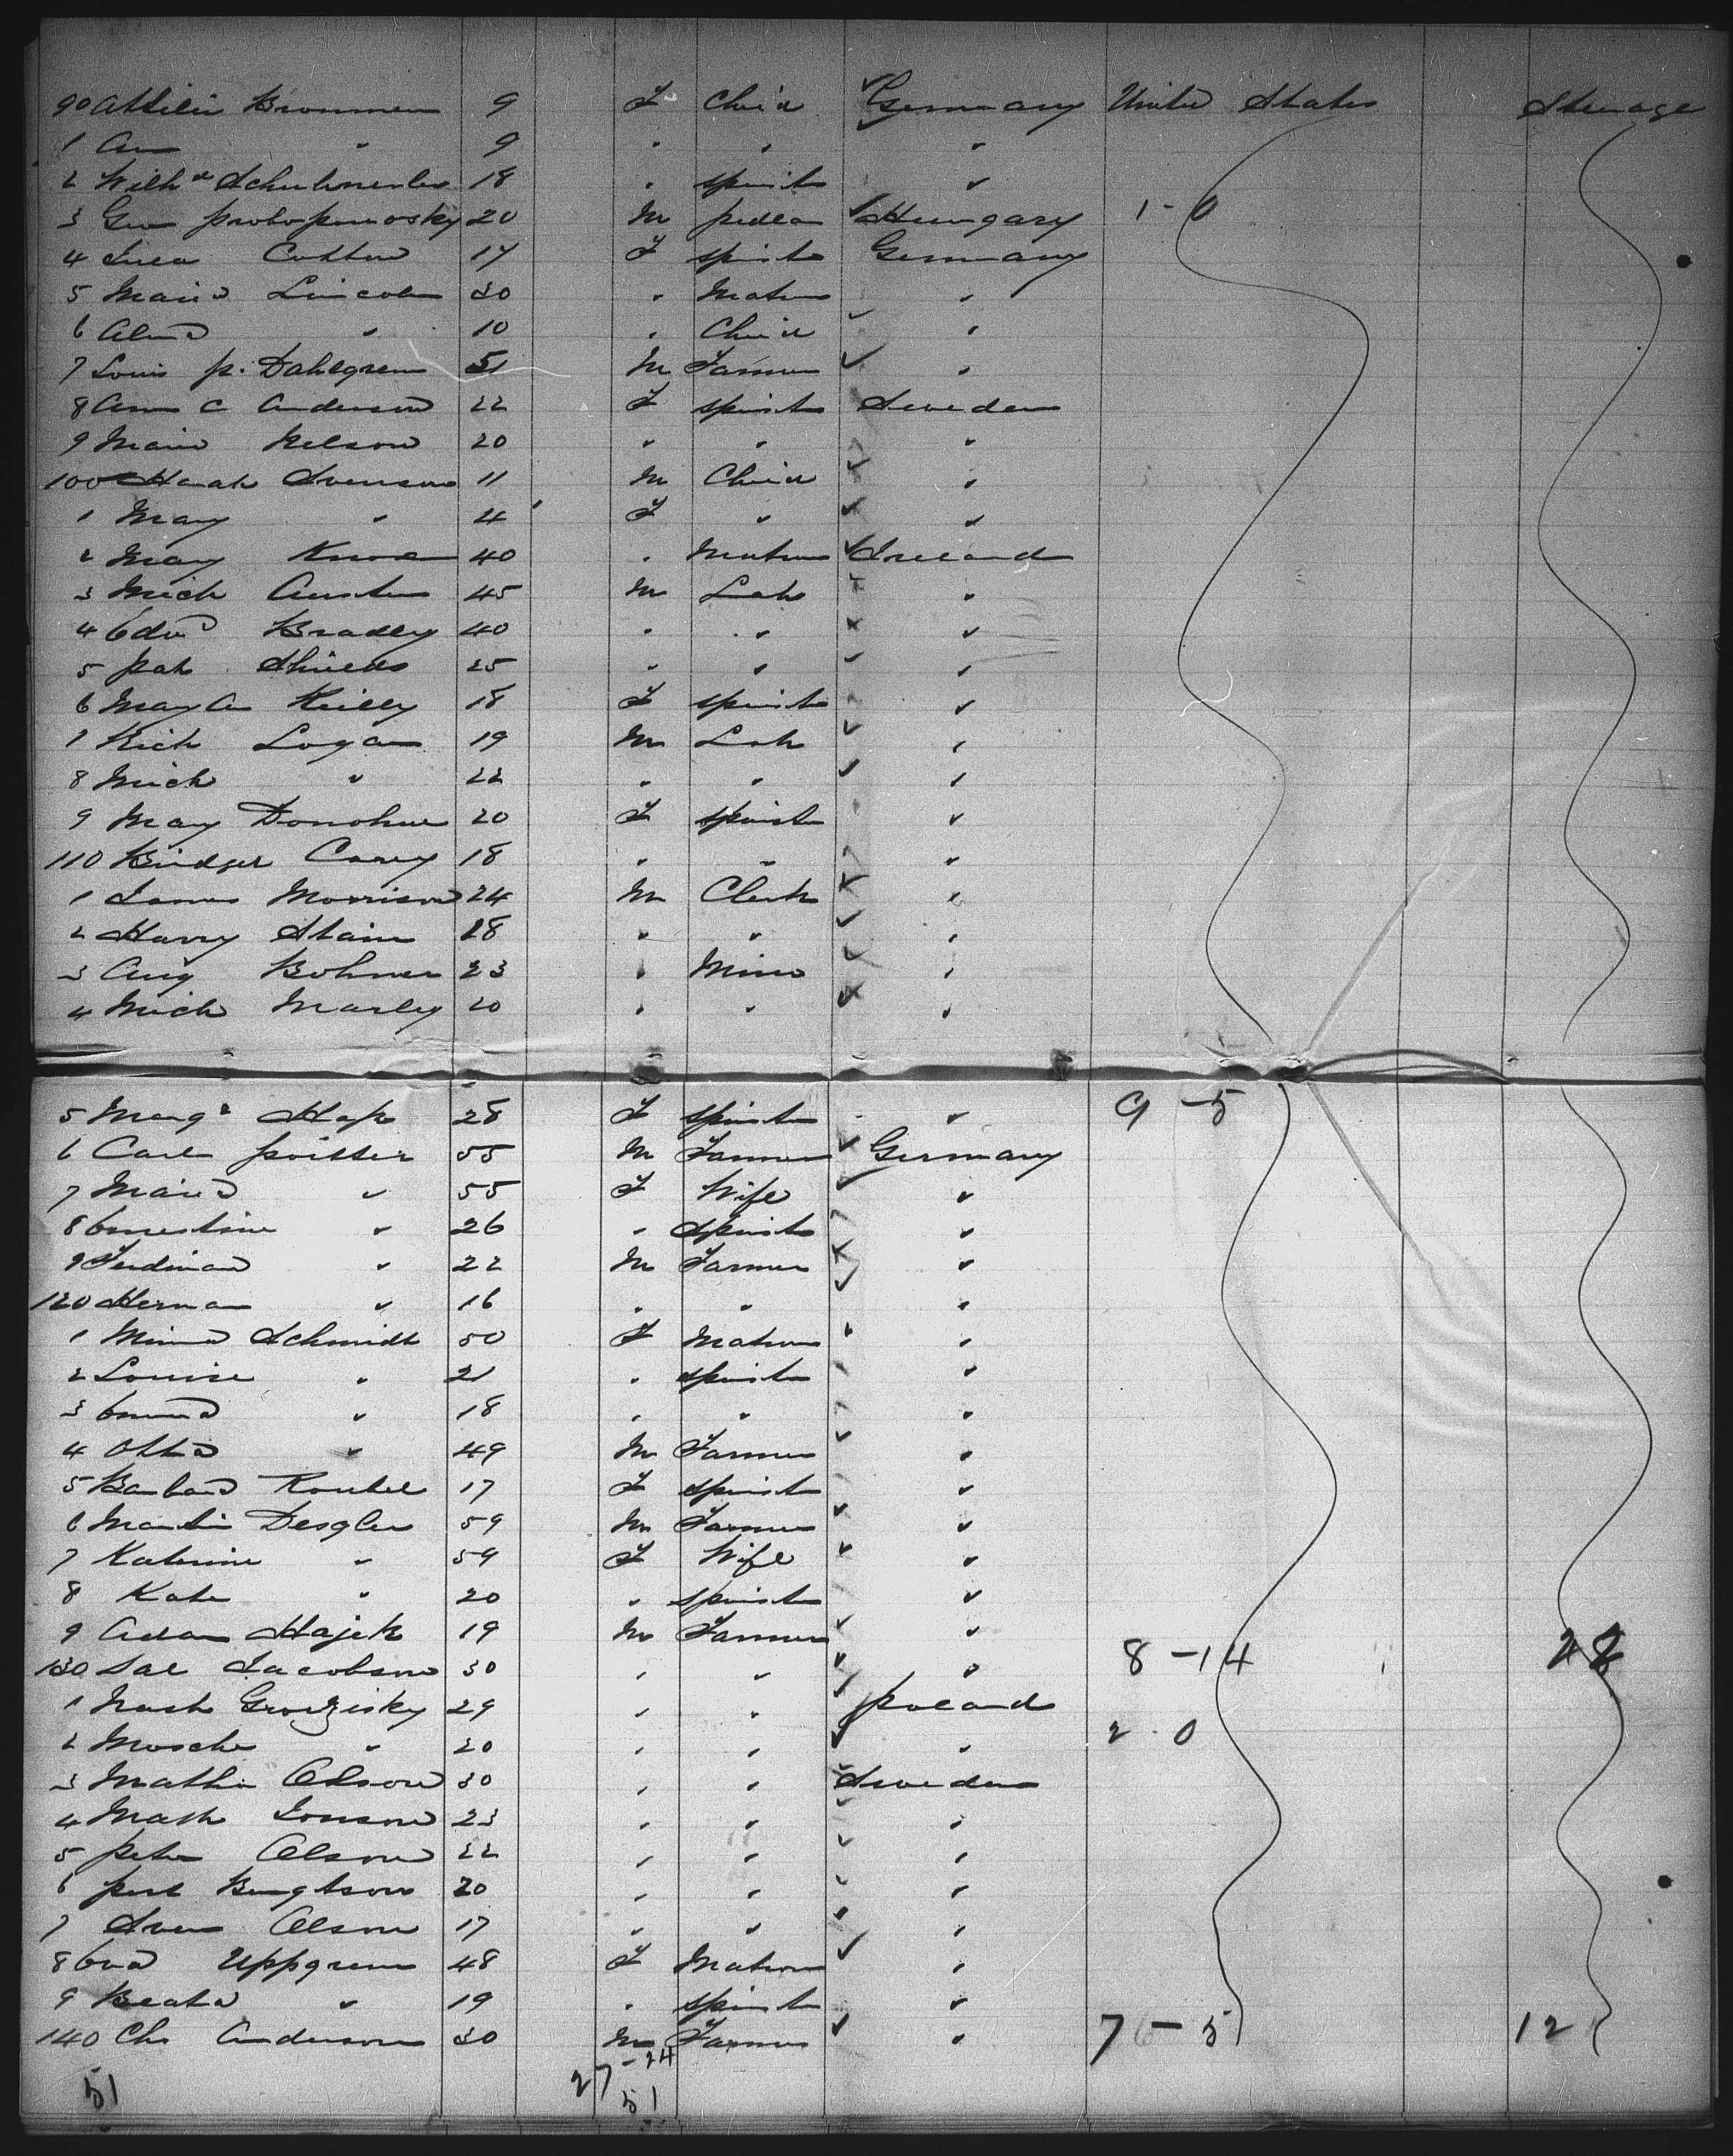 90 Bronmen 9 F Child Germany United States Steerage
1 Ann " 9 " " "
2 Wilh 18 " spinst "
3 Geo 20 M Hungary 1-0
4 17 F spinst Germany
5 Maria Lincoln 30 " Matron "
6 10 " Child "
7 Louis p. Dahlgren 51 M Farmer "
8 Ann C Anderson 22 F spinst Sweden
9 Maria Nelson 20 " " "
100 Svenson 11 M Child "
1 Mary " 4 F " "
2 Mary Knox 40 " Matron Ireland
3 Mich 45 M Lab "
4 Edwd Bradley 40 " " "
5 pat Shields 25 " " "
6 Mary A Reilly 18 F spinst "
7 Rich Logan 19 M Lab "
8 Mich " 22 " " "
9 Mary Donohue 20 F spinst "
110 Bridget Carey 18 " " "
1 James Morrison 24 M Clerk "
2 Harry 28 " " "
3 Aug Bohmer 23 " Miner "
4 Mich Marley 20 " " "
5 Margt 28 F spinst " 9-5
6 Carl 55 M Farmer Germany
7 Maria " 55 F Wife "
8 Ernestine " 26 " spinst "
9 Ferdinand " 22 M Farmer "
120 Herman " 16 " " "
1 Minna Schmidt 50 F Matron "
2 Louise " 21 " spinst "
3 Emma " 18 " " "
4 Otto " 49 M Farmer "
5 Barbara Roubel 17 F spinst "
6 Martin Desgler 59 M Farmer "
7 Katerine " 59 F Wife "
8 Kate " 20 " spinst "
9 Adam Hajek 19 M Farmer "
130 Sal Jacobson 30 " " " 8-14 28
1 Grodzisky 29 " " poland
2 Mosche " 20 " " " 2-0
3 Olson 30 " " Sweden
4 Math Jonson 23 " " "
5 peter Olson 22 " " "
6 Bengtson 20 " " "
7 Sven Olson 17 " " "
8 Eva Uppgren 48 F Matron "
9 Beata " 19 " spinst "
140 Chs Anderson 30 M Farmer " 7-5 12
27-24
51 51